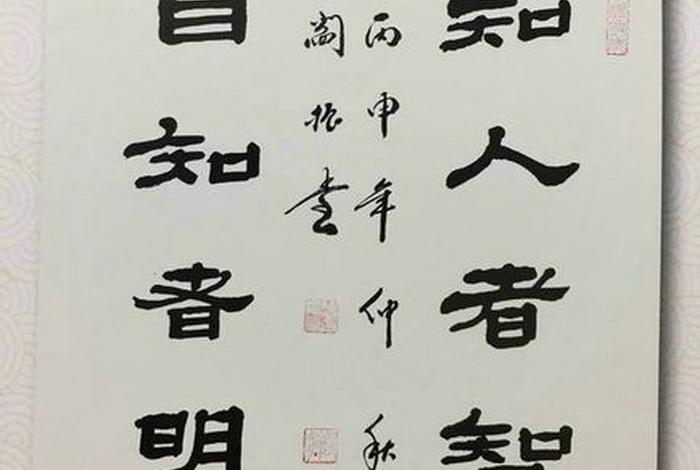 知人者智
丙申年仲秋
阚振堂
自知者明